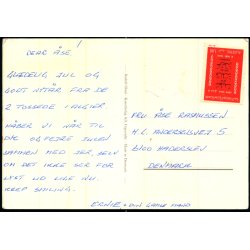 DEAR ÅSE!
GLÆDELIG JUL OG
GODT NYTÅR FRA DE
2 TOSSEDE I ALGIER
HÅBER VI NÅR TIL
DIG OG PETRE JULEN
SAMMEN MED JER, SELV
OM DET IKKE SER FOR
LYST UD LIGE NU.
KEEP SMILING.
ERNIE + DIN GAMLE MAND
FRU ÅSE RASMUSSEN
H.C. ANDERSENSVEJ 5
6100 HADERSLEV
DENMARK